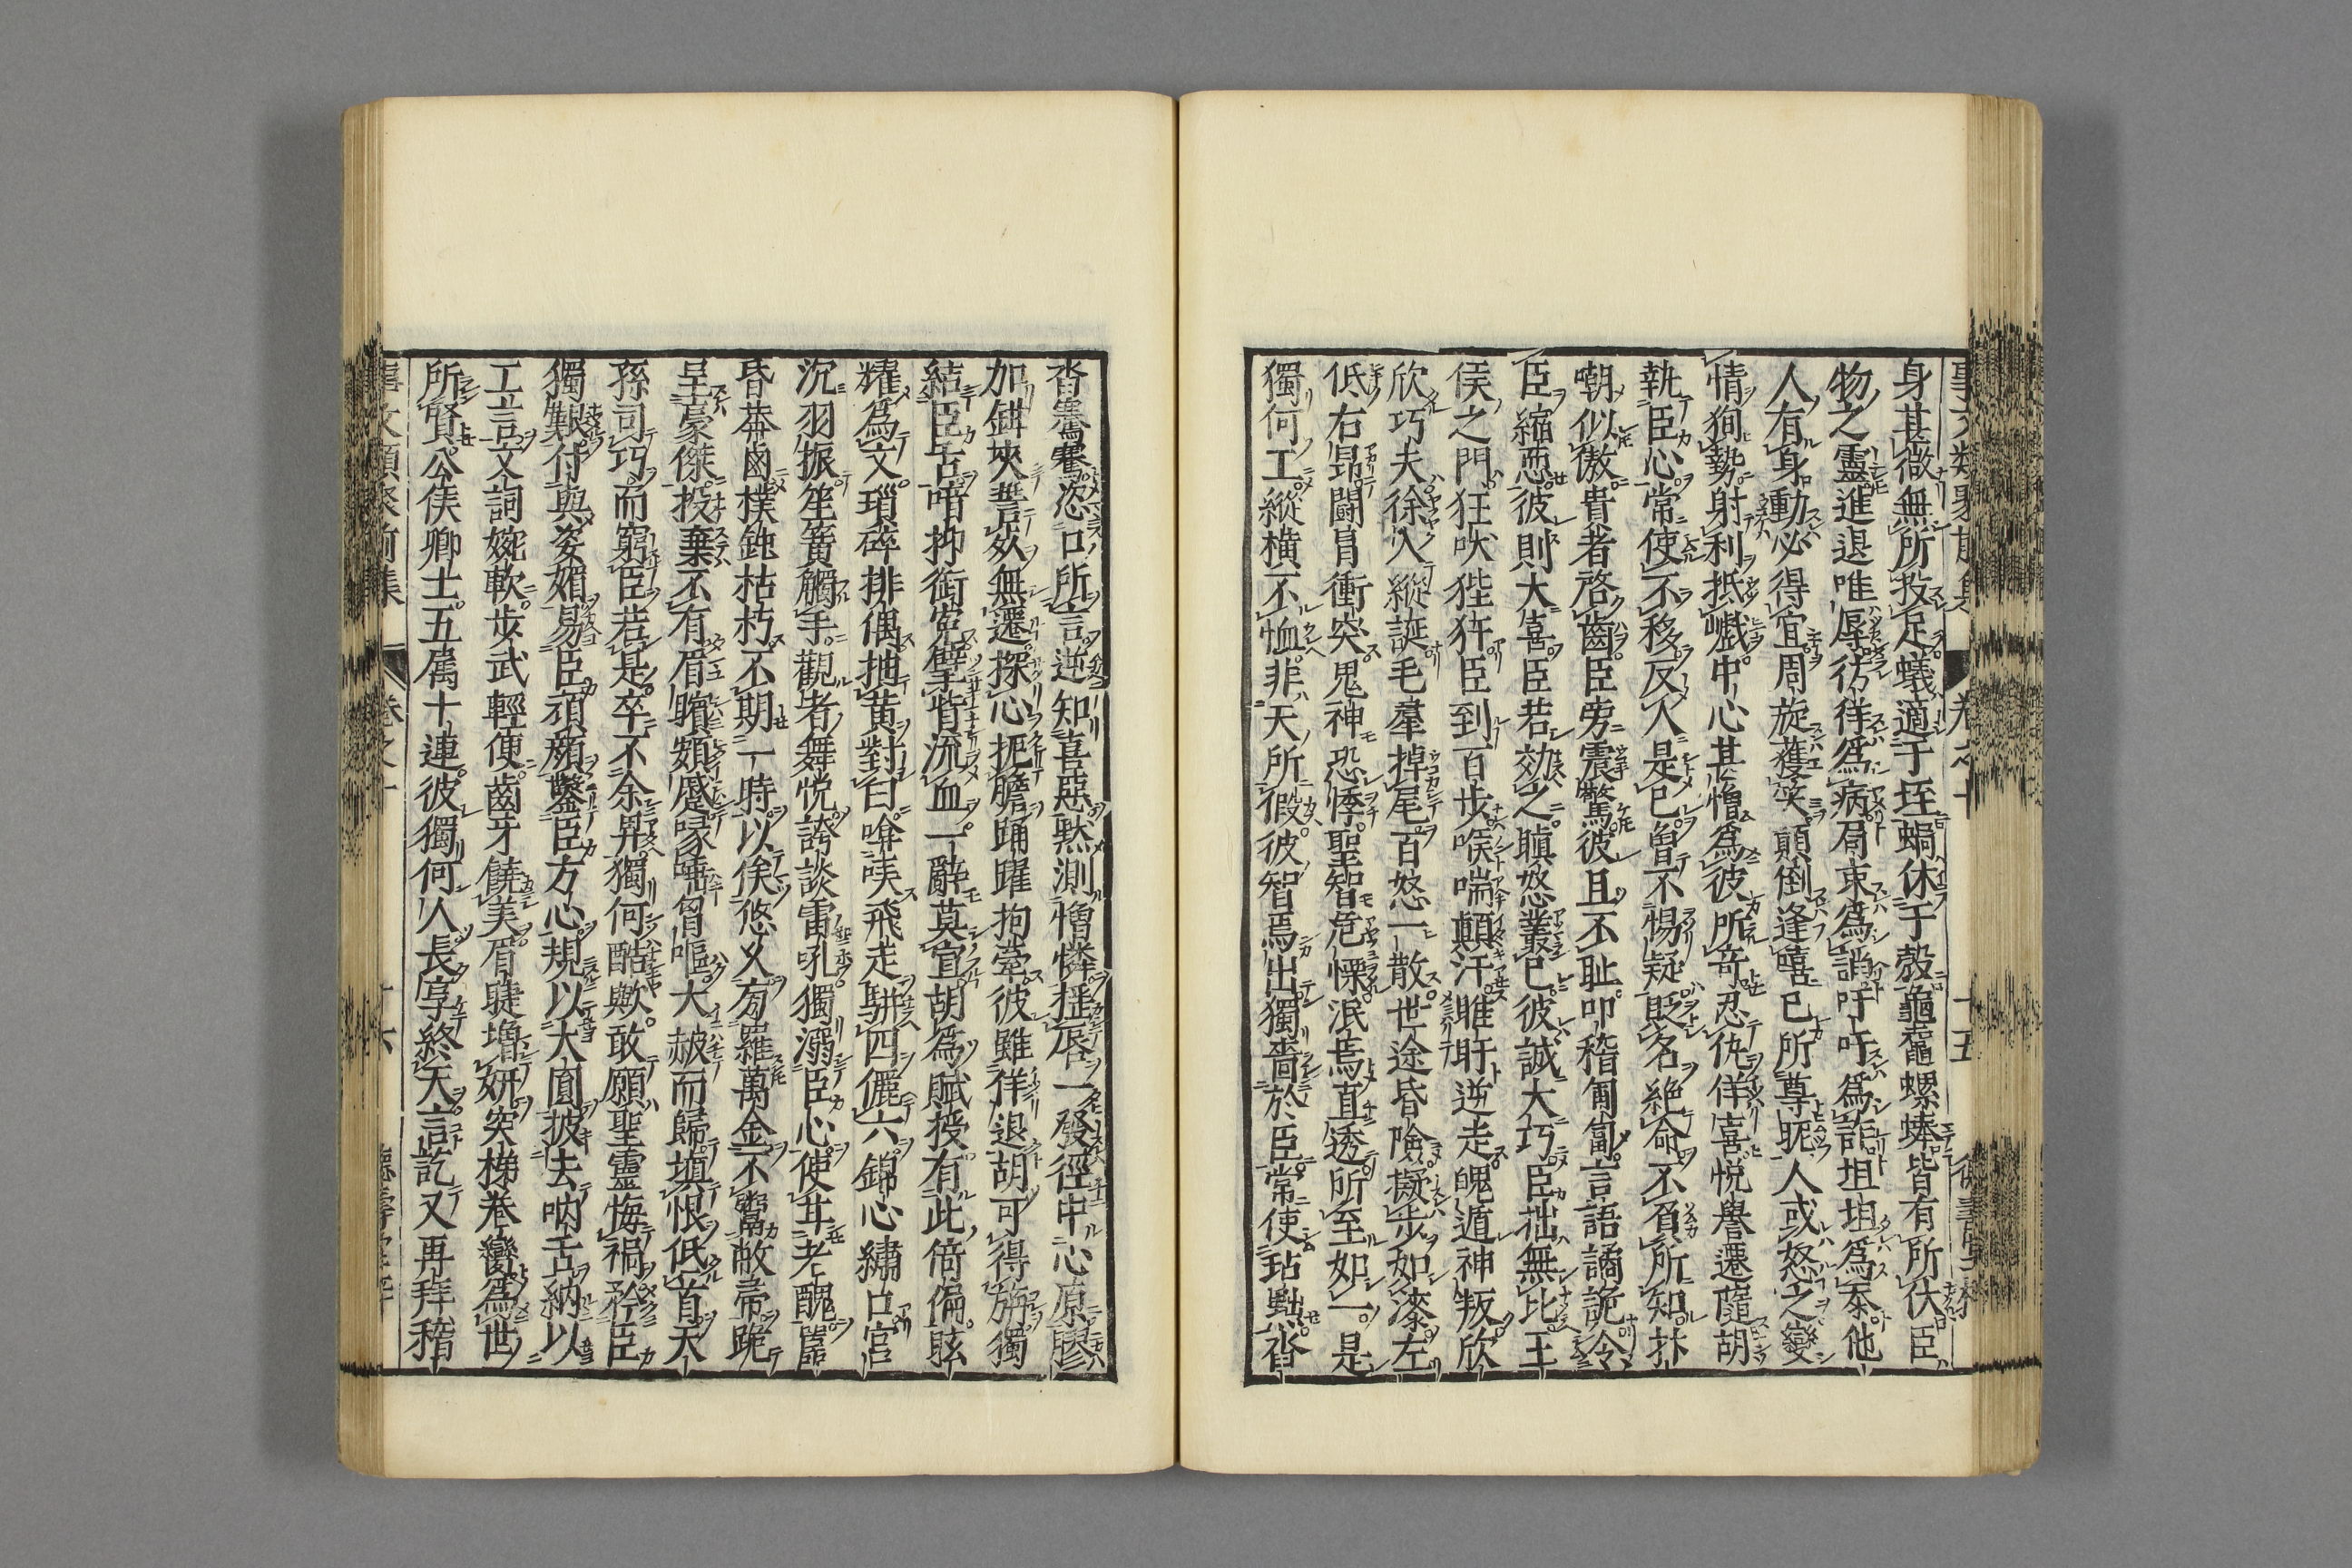 身甚微無所投足蟻適于垤蝸休于殼龜黿螺蜯皆有所伏臣
物之靈進退唯辱彷徉爲病局束爲諂吁吁爲詐坦坦爲忝他
人有身動必得宜周旋獲笑顛倒逢嘻已所尊昵人或怒之變
情徇勢射利抵巇中心甚憎爲彼所奇忍仇佯喜悦譽遷隨胡
執臣心常使不移反人是已曾不惕疑貶名絶命不負所知抃
嘲似傲貴者啓齒臣旁震驚彼且不耻叩稽匍匐言語譎詭令
臣縮恧彼則大喜臣若効之瞋怒叢已彼誠大巧臣拙無比王
侯之門狂吠狴犴臣到百步喉喘顛汗睢盱逆走魄遁神叛欣
欣巧夫徐入縱誕毛羣掉尾百怒一散世途昏險擬步如漆左
低右昻鬪冐衝突鬼神恐悸聖智危慄泯焉直透所至如一是
獨何工縱横不恤非天所假彼智焉出獨嗇於臣常使玷黜沓
沓騫騫恣口所言逆知喜惡默測憎憐揺唇一發徑中心原膠
加鉗夾誓死無遷探心扼膽踊躍拘牽彼雖佯退胡可得旃獨
結臣舌喑抑銜寃擘眥流血一辭莫宣胡爲賦授有此偏眩
耀爲文瑣碎排偶抽黄對白啽哢飛走駢四儷六錦心繡口宫
沉羽振笙簧觸手觀者舞悦誇談雷吼獨溺臣心使甘老醜嚚
昏莽鹵樸鈍枯朽不期一時以俟悠久旁羅萬金不鬻敝帚跪
呈豪傑投棄不有眉矉頞蹙喙唾胷嘔大赧而歸塡恨低首天
孫司巧而窮臣若是卒不余畀獨何酷歟敢願聖靈悔禍矜臣
獨艱付與姿媚易臣頑顔鑿臣方心規以大圓披去呐舌納以
工言文詞婉軟步武輕便齒牙饒美眉睫增妍突梯卷臠爲世
所賢公侯卿士五属十連彼獨何人長享終天言訖又再拜稽